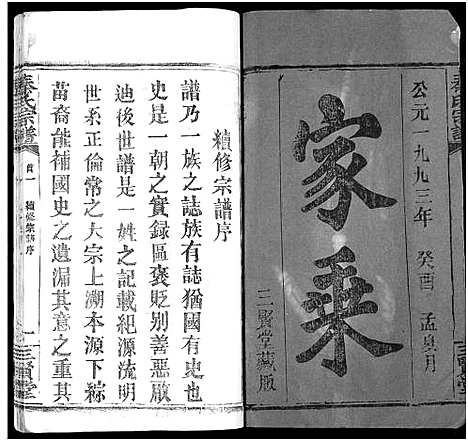 公元一九九三年 癸酉 孟臭月
家乘
三賢堂藏版
續修宗譜序
譜乃一族之誌族有誌猶國有史也
史是一朝之實録區褒貶别善惡厥
迪後世譜是一姓之記載紀源流明
世系正倫常之大宗上溯本源下綜
苗裔能補國史之遺漏其意之重其
秦氏宗譜
首一 續修宗譜序
三賢堂